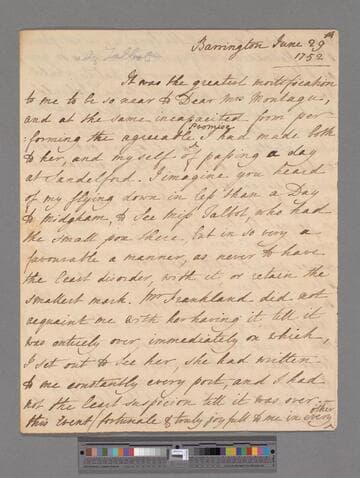 Barrington June 29th
1752
It was the greatest mortification
to me to be so near to Dear Mrs Montagu,
and at the same incapacited form per-
:forming the agreeable promise I had made both
to her, and myself of passing a day
at Sandelford. I imagine you heard
of my flying down in less than a Day
to Midgham, to see Miss Talbot, who had
the small pox there, but in so very a
favourable a manner, as never to have
the least disorder, with it or retain the
smallest mark. Mrs Frankland did not
acquaint me with her having it till it
was entirely over, immediately on which,
I set out to see her, she had written
to me constantly every post, and I had
not the least suspicion till it was over.
this Event (fortunate & truly joyfull to me in every other